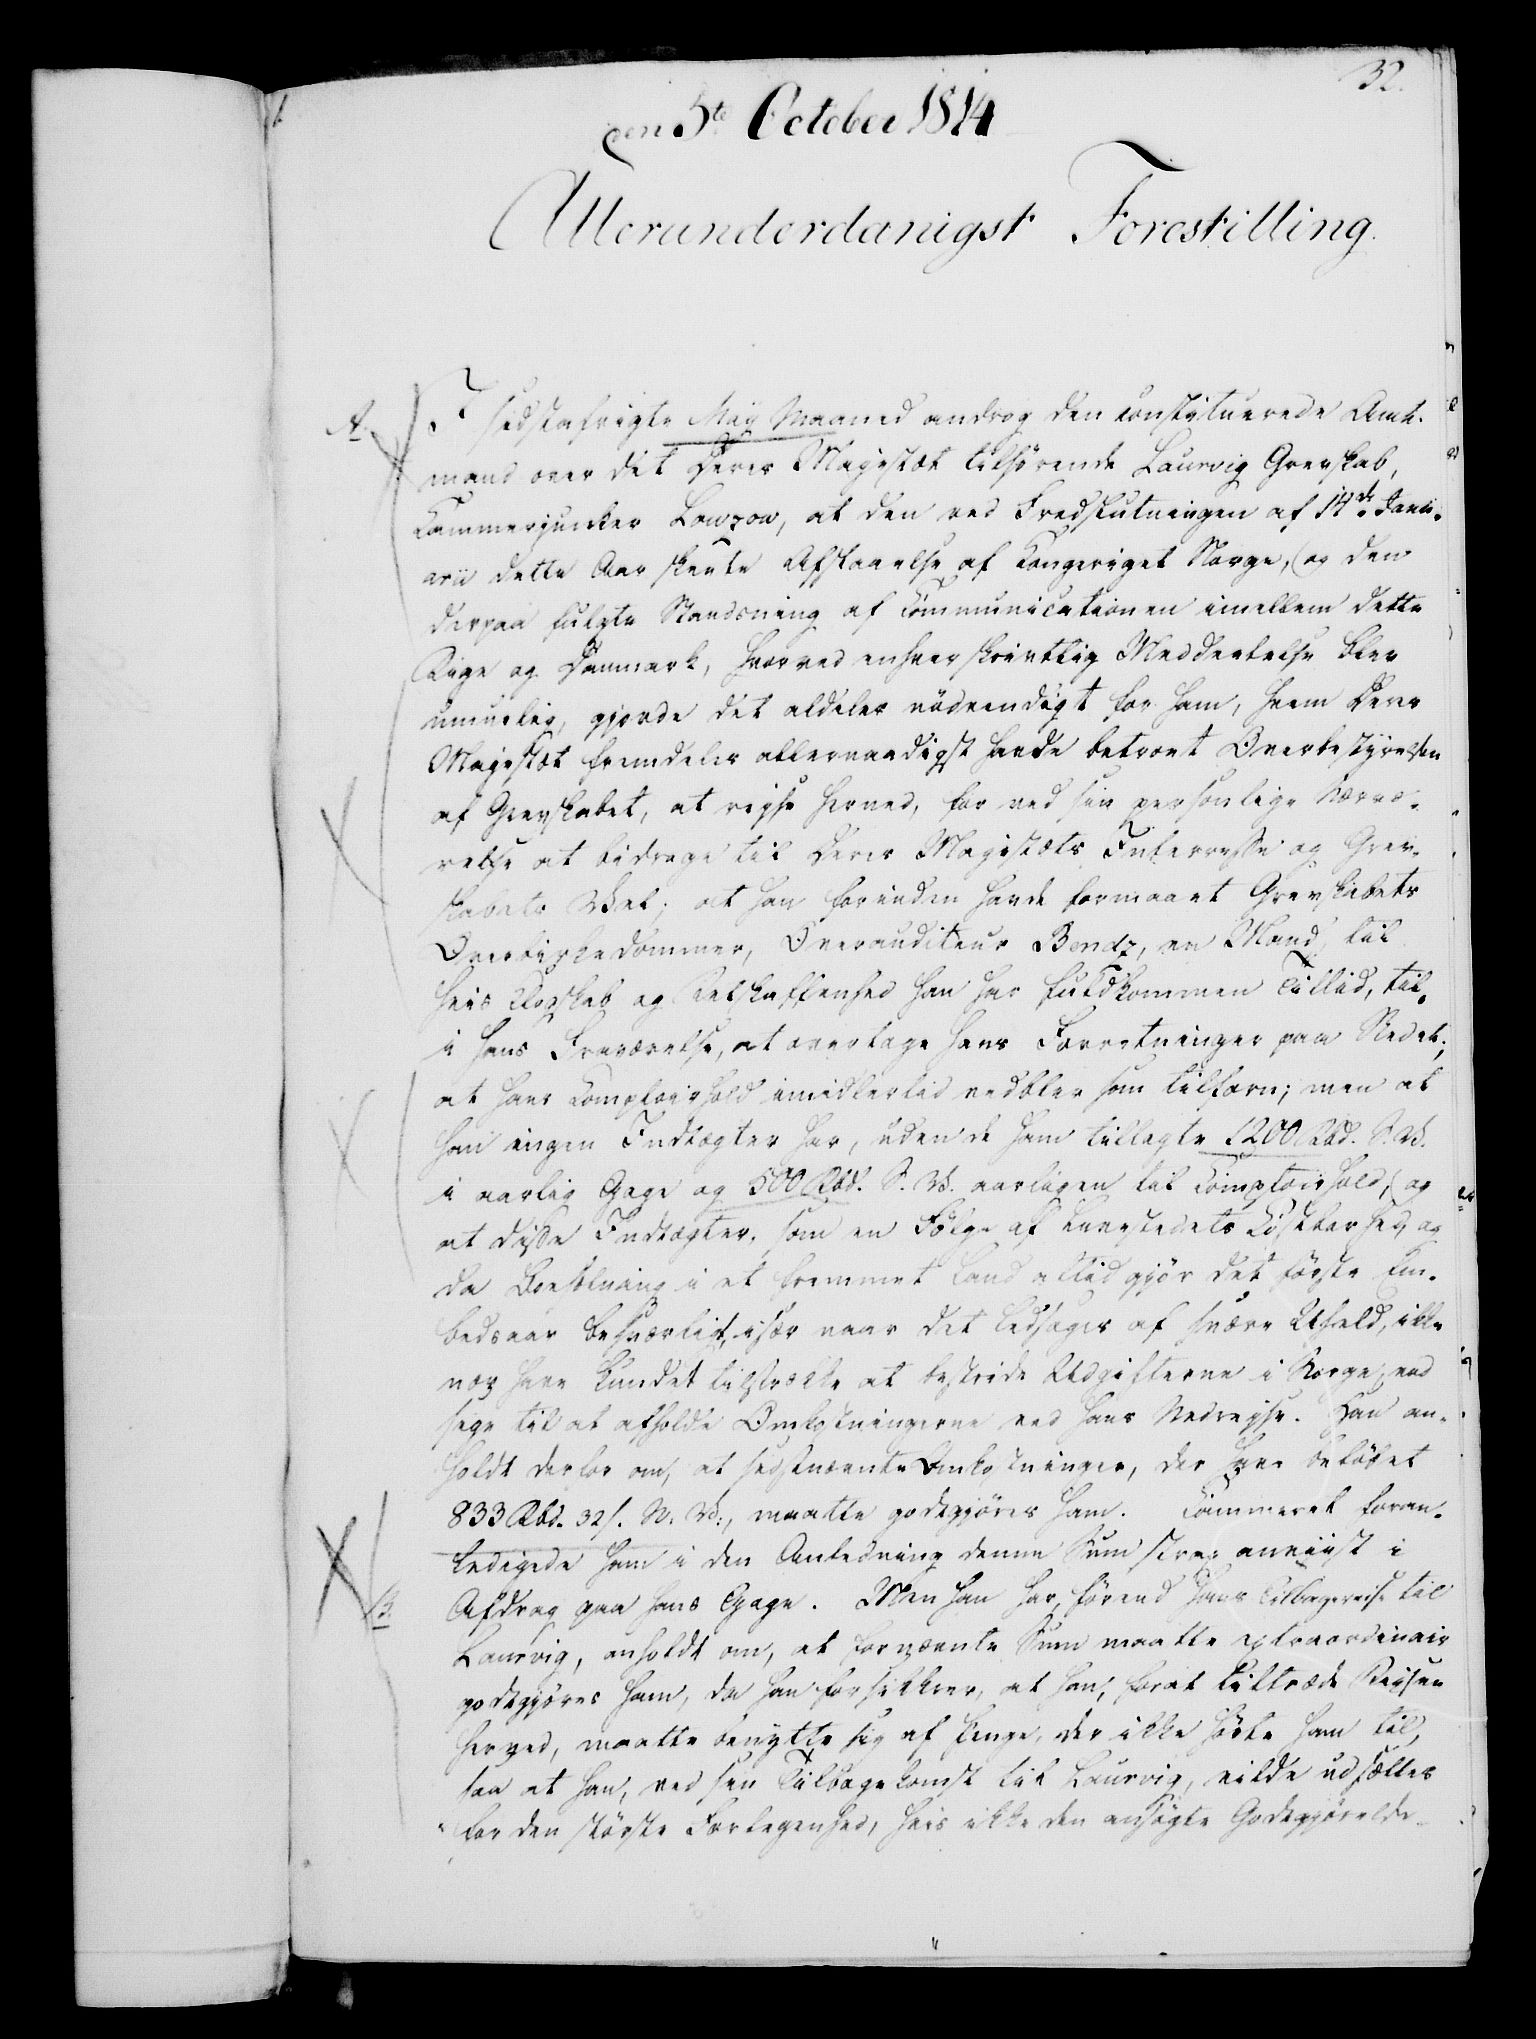 32.
den 5te October 1814
Allerunderdanigst Forestilling.
A. I sidstafvigte May Maaned androg den constituerede Amt-
mand over det Deres Majestæt tilhörende Laurvig Grevskab,
Kammerjunker Lowzow, at den ved Fredslutningen af 14de Janu-
arii dette Aar skeete Afstaaelse af Kongeriget Norge, og den
derpaa fulgte Standsning af Communicationen imellem dette
Rige og Danmark, hvorved enhver skrivtlig Meddeelelse blev
umuelig, gjorde det aldeles nödvendigt for ham, hvem Deres
Majestæt fremdeles allernaadigst havde betroet Overbestyrelsen
af Grevskabet, at rejse herned, for ved sin personlige Nærvæ-
relse at bidrage til Deres Majestæts Interresse og Grev-
skabets Vel; at han forinden havde formaaet Grevskabets
Overbirkedommer, Overauditeur Bendz, en Mand, til
hvis Klogskab og Retskaffenhed han har fuldkommen Tillid, til,
i hans Fraværelse, at overtage hans Forretninger paa Stedet;
at hans Comptoirhold imidlertid vedblev som tilforn; men at
han ingen Indtægter har, uden de ham tillagte 1200 Rbd. S.V.
i aarlig Gage og 500 Rbd. S.V. aarligen til Comptoirhold, og
at disse Indtægter, som en Fölge af Levestedets Kostbarhed, og
da Bosætning i et fremmet Land altid gjör det förste Em-
bedsaar besværligt, især naar det ledsages af svære Uheld, ikke
nær have kundet tilstrække at bestride Udgifterne i Norge, end
sige til at afholde Omkostningerne ved hans Nedrejse. Han an-
holdt derfor om, at sidstnævnte Omkostninger, der have belöbet
833 Rbd. 32 s. N.V., maatte godtgjöres ham. Kammeret foran-
ledigede ham i den Anledning denne Sum strax anviist i
B. Afdrag paa hans Gage. Men han har, förend hans Tilbagereise til
Laurvig, anholdt om, at fornævnte Sum maatte extraordinair
godtgjöres ham, da han forsikkrer, at han, forat tiltræde Reisen
herned, maatte benytte sig af Penge, der ikke hörte ham til,
saa at han, ved sin Tilbagekomst til Laurvig, vilde udsættes
for den störste Forlegenhed, hvis ikke den ansögte Godtgjörelse